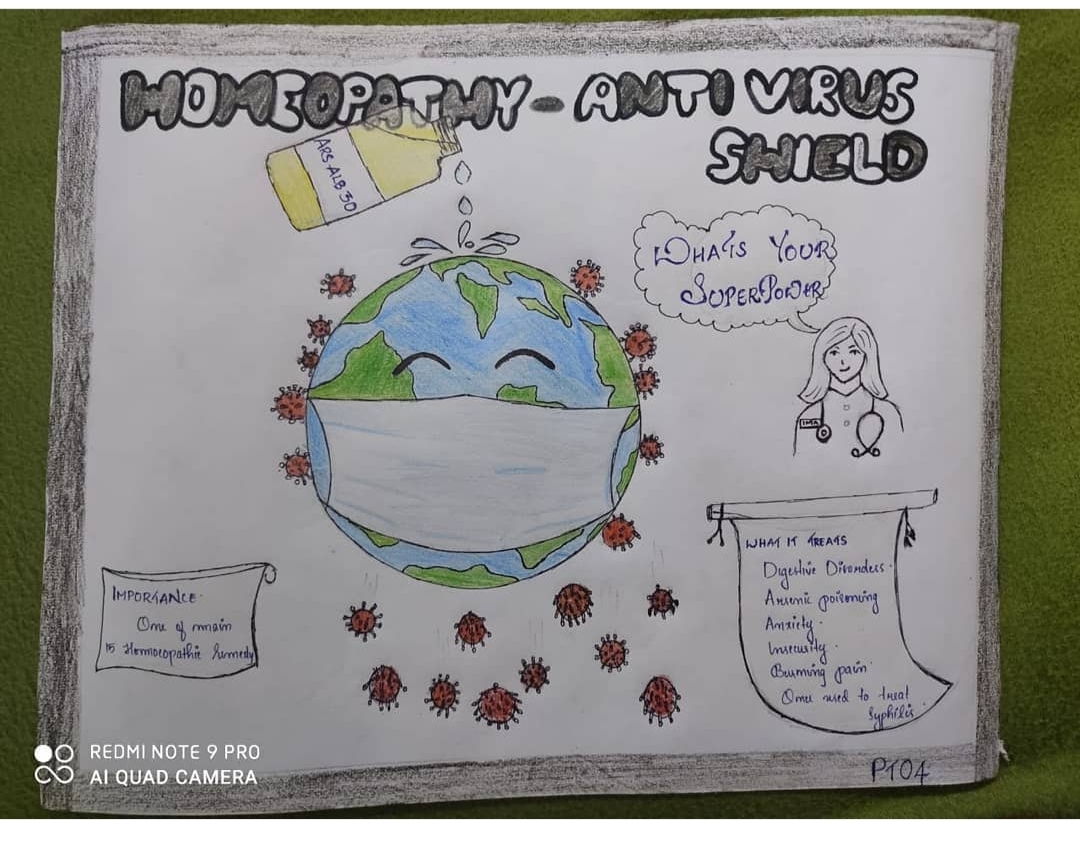 HOMEOPATHY - ANTI VIRUS
SHIELD
ARS ALB 30
WHAT'S YOUR
SUPERPOWER
IMA
IMPORTANCE
One of main
15 Homoeopathic Remedy
WHAT IT TREATS
Digestive Disorders.
Arsenic poisoning
Anxiety.
Insecurity.
Burning pain
Once used to treat
Syphilis.
PT04
REDMI NOTE 9 PRO
AI QUAD CAMERA